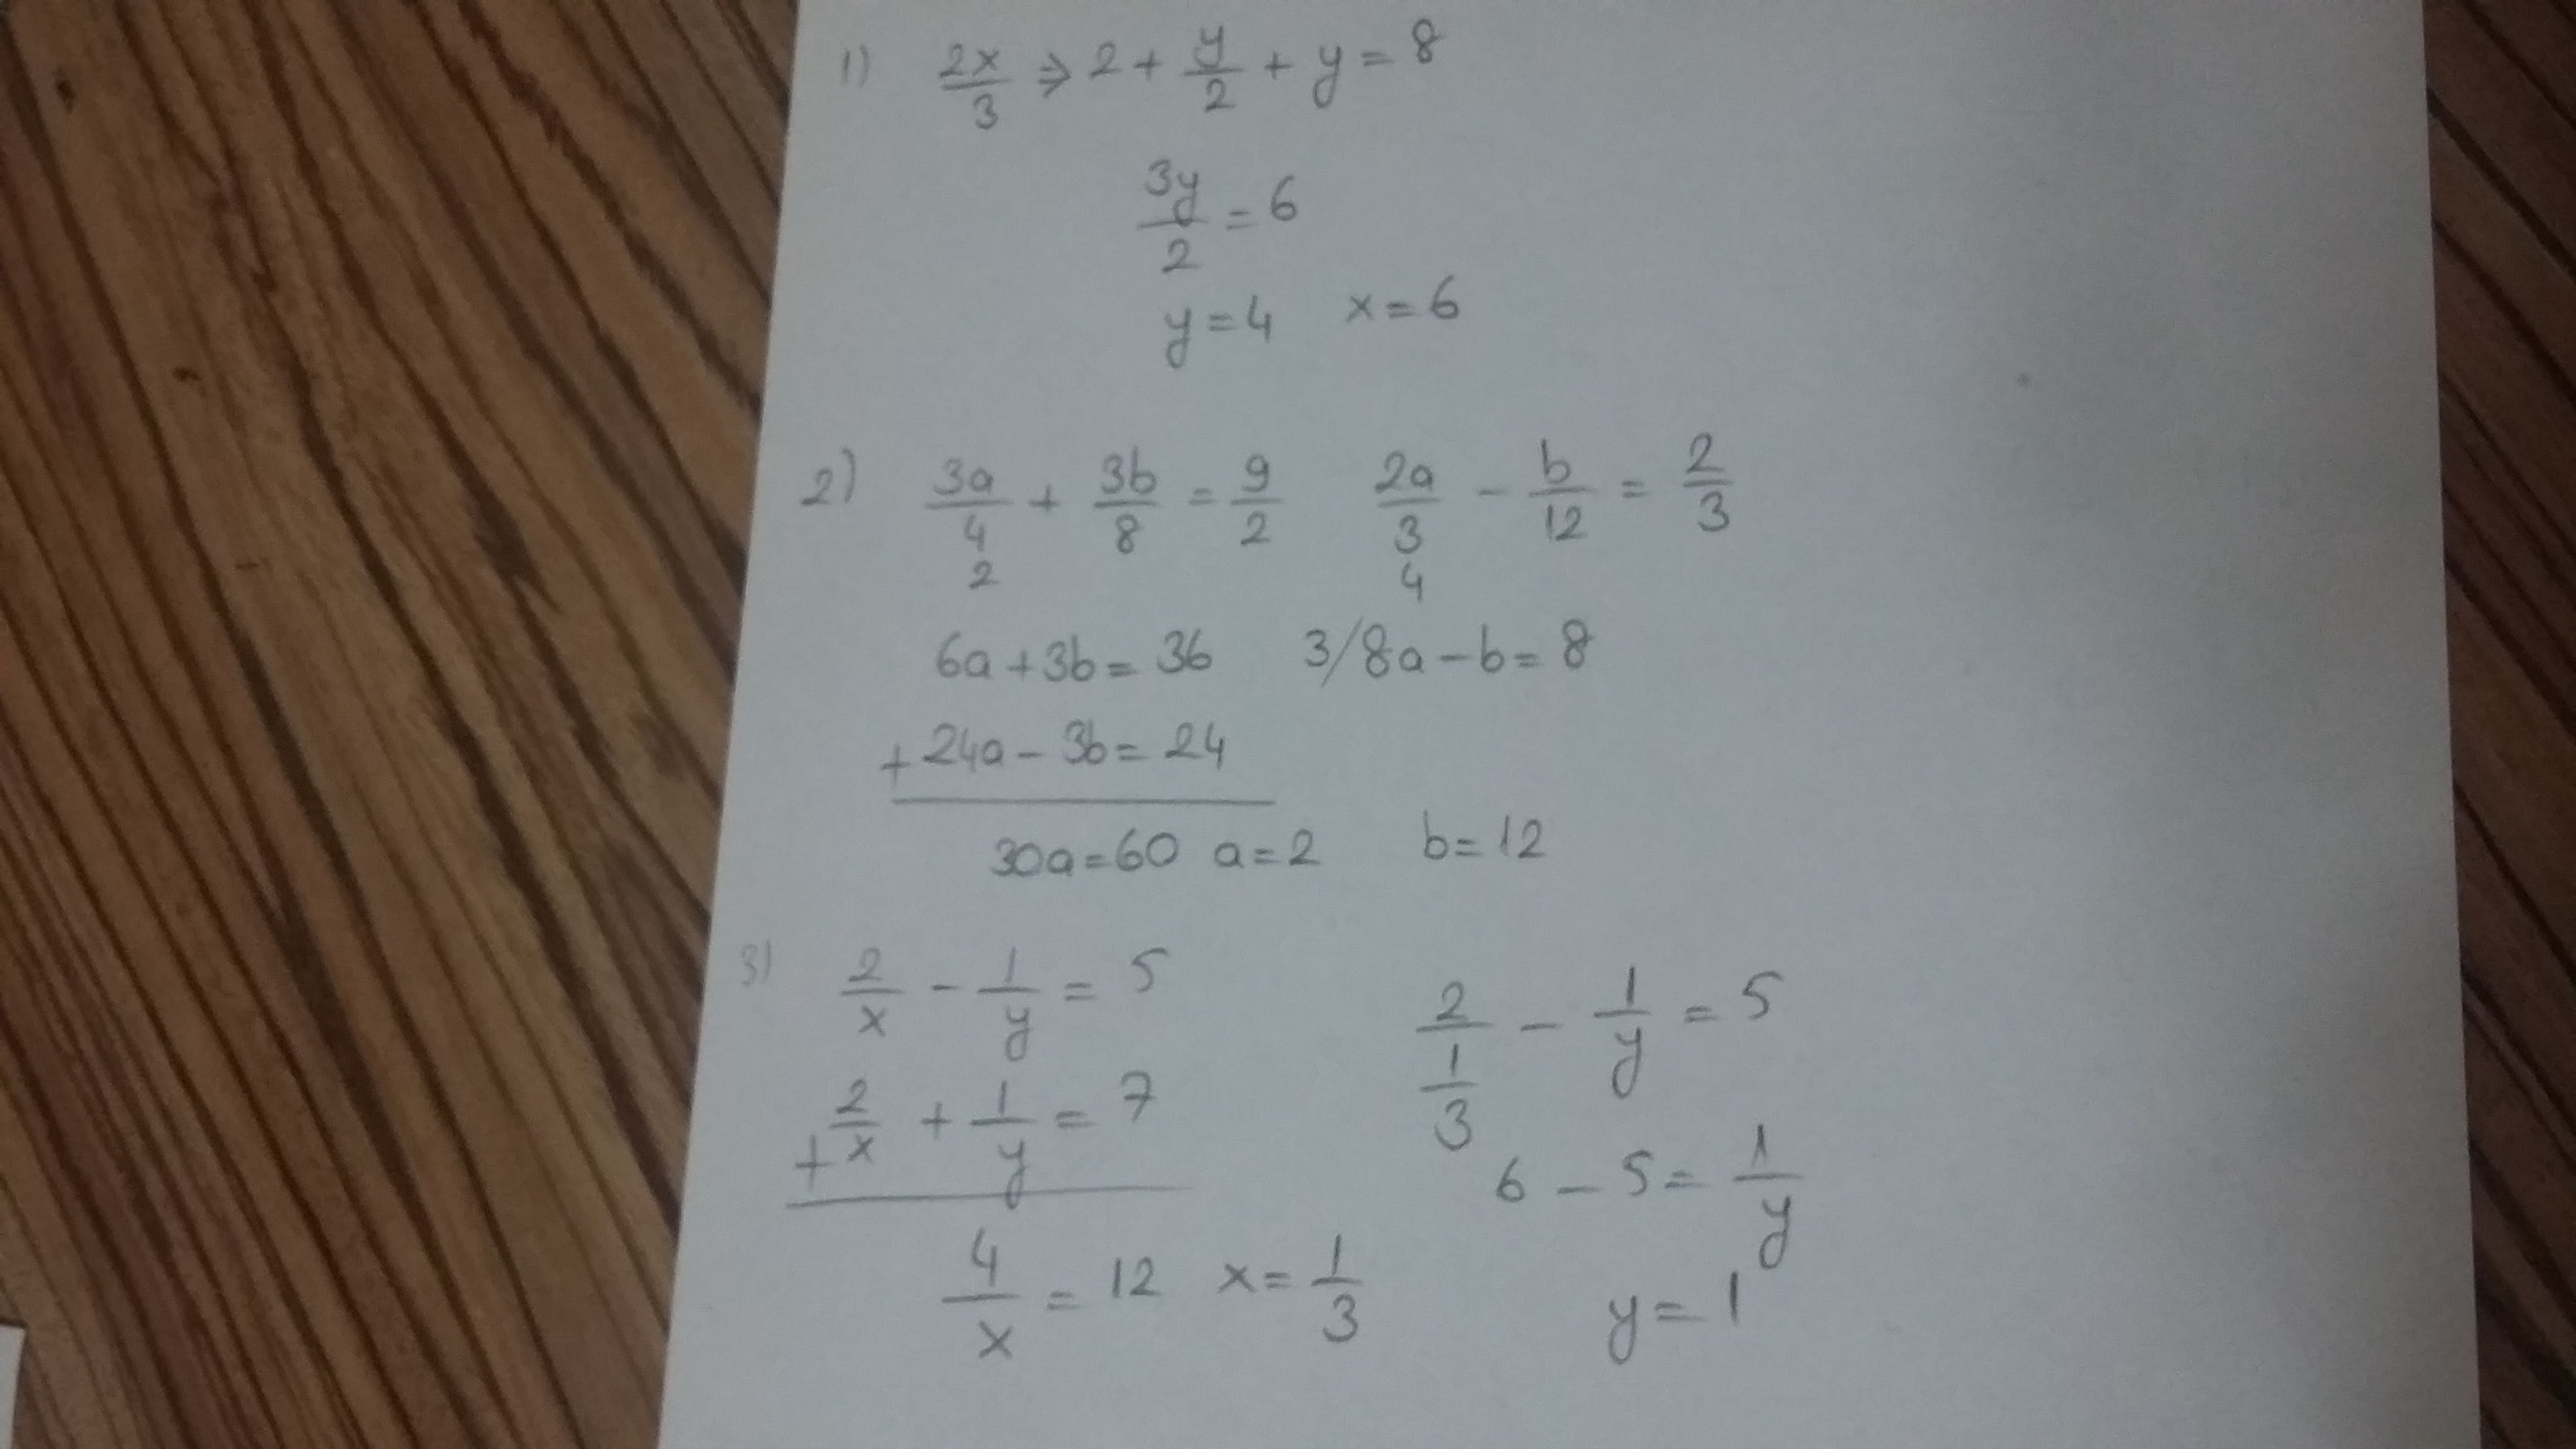 1) 2x/3 ⇒ 2 + y/2 + y = 8
3y/2 = 6
y = 4 x = 6
2) 3a/4 + 3b/8 = 9/2 2a/3 - b/12 = 2/3
2 4
6a + 3b = 36 3/8a - b = 8
+ 24a - 3b = 24
30a = 60 a = 2 b = 12
3) 2/x - 1/y = 5
+ 2/x + 1/y = 7
4/x = 12 x = 1/3
2/(1/3) - 1/y = 5
6 - 5 = 1/y
y = 1